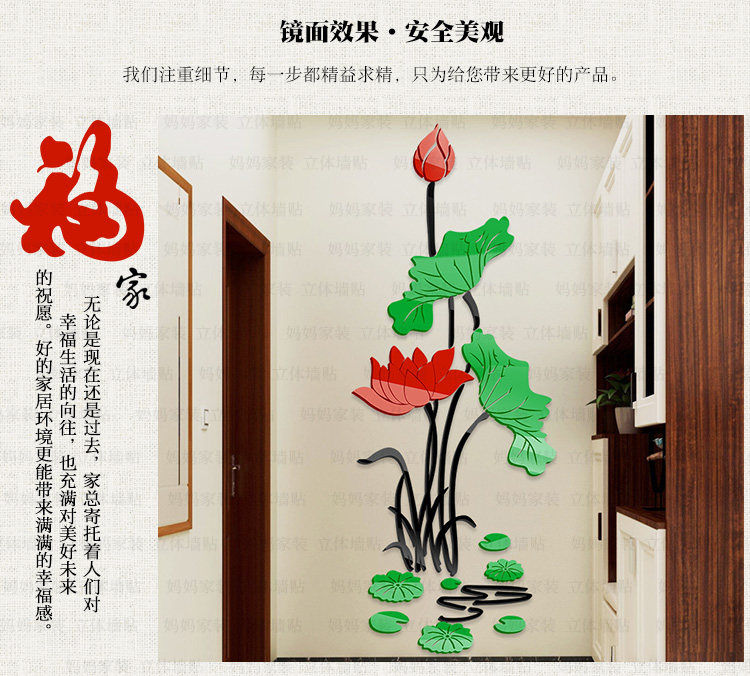 镜面效果·安全美观
我们注重细节，每一步都精益求精，只为给您带来更好的产品。
福
家
无论是现在还是过去，家总寄托着人们对
幸福生活的向往，也充满对美好未来
的祝愿。好的家居环境更能带来满满的幸福感。
妈妈家装 立体墙贴